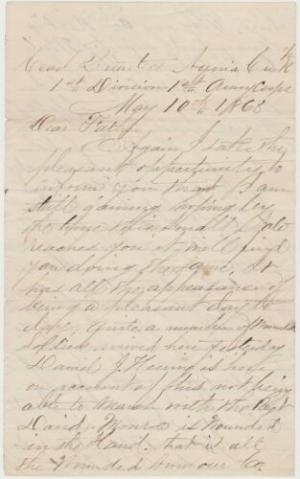 Head Quarters Aquia Creek
1st Division 1st Army Corps
May 10th 1863
Dear Father
Again I take the
pleasant opportunity to
inform you that I am
still gaining hoping
before this small
reaches you it will find
you doing the same. It
has all the appearance of
being a pleasant day to
day. Quite a number of Wounded
Soldiers arrived here yesterday
Daniel J. is here
on account of his not being
able to march with the Regt
David Monroe is Wounded
in the Hand. that is all
the Wounded from our Co.